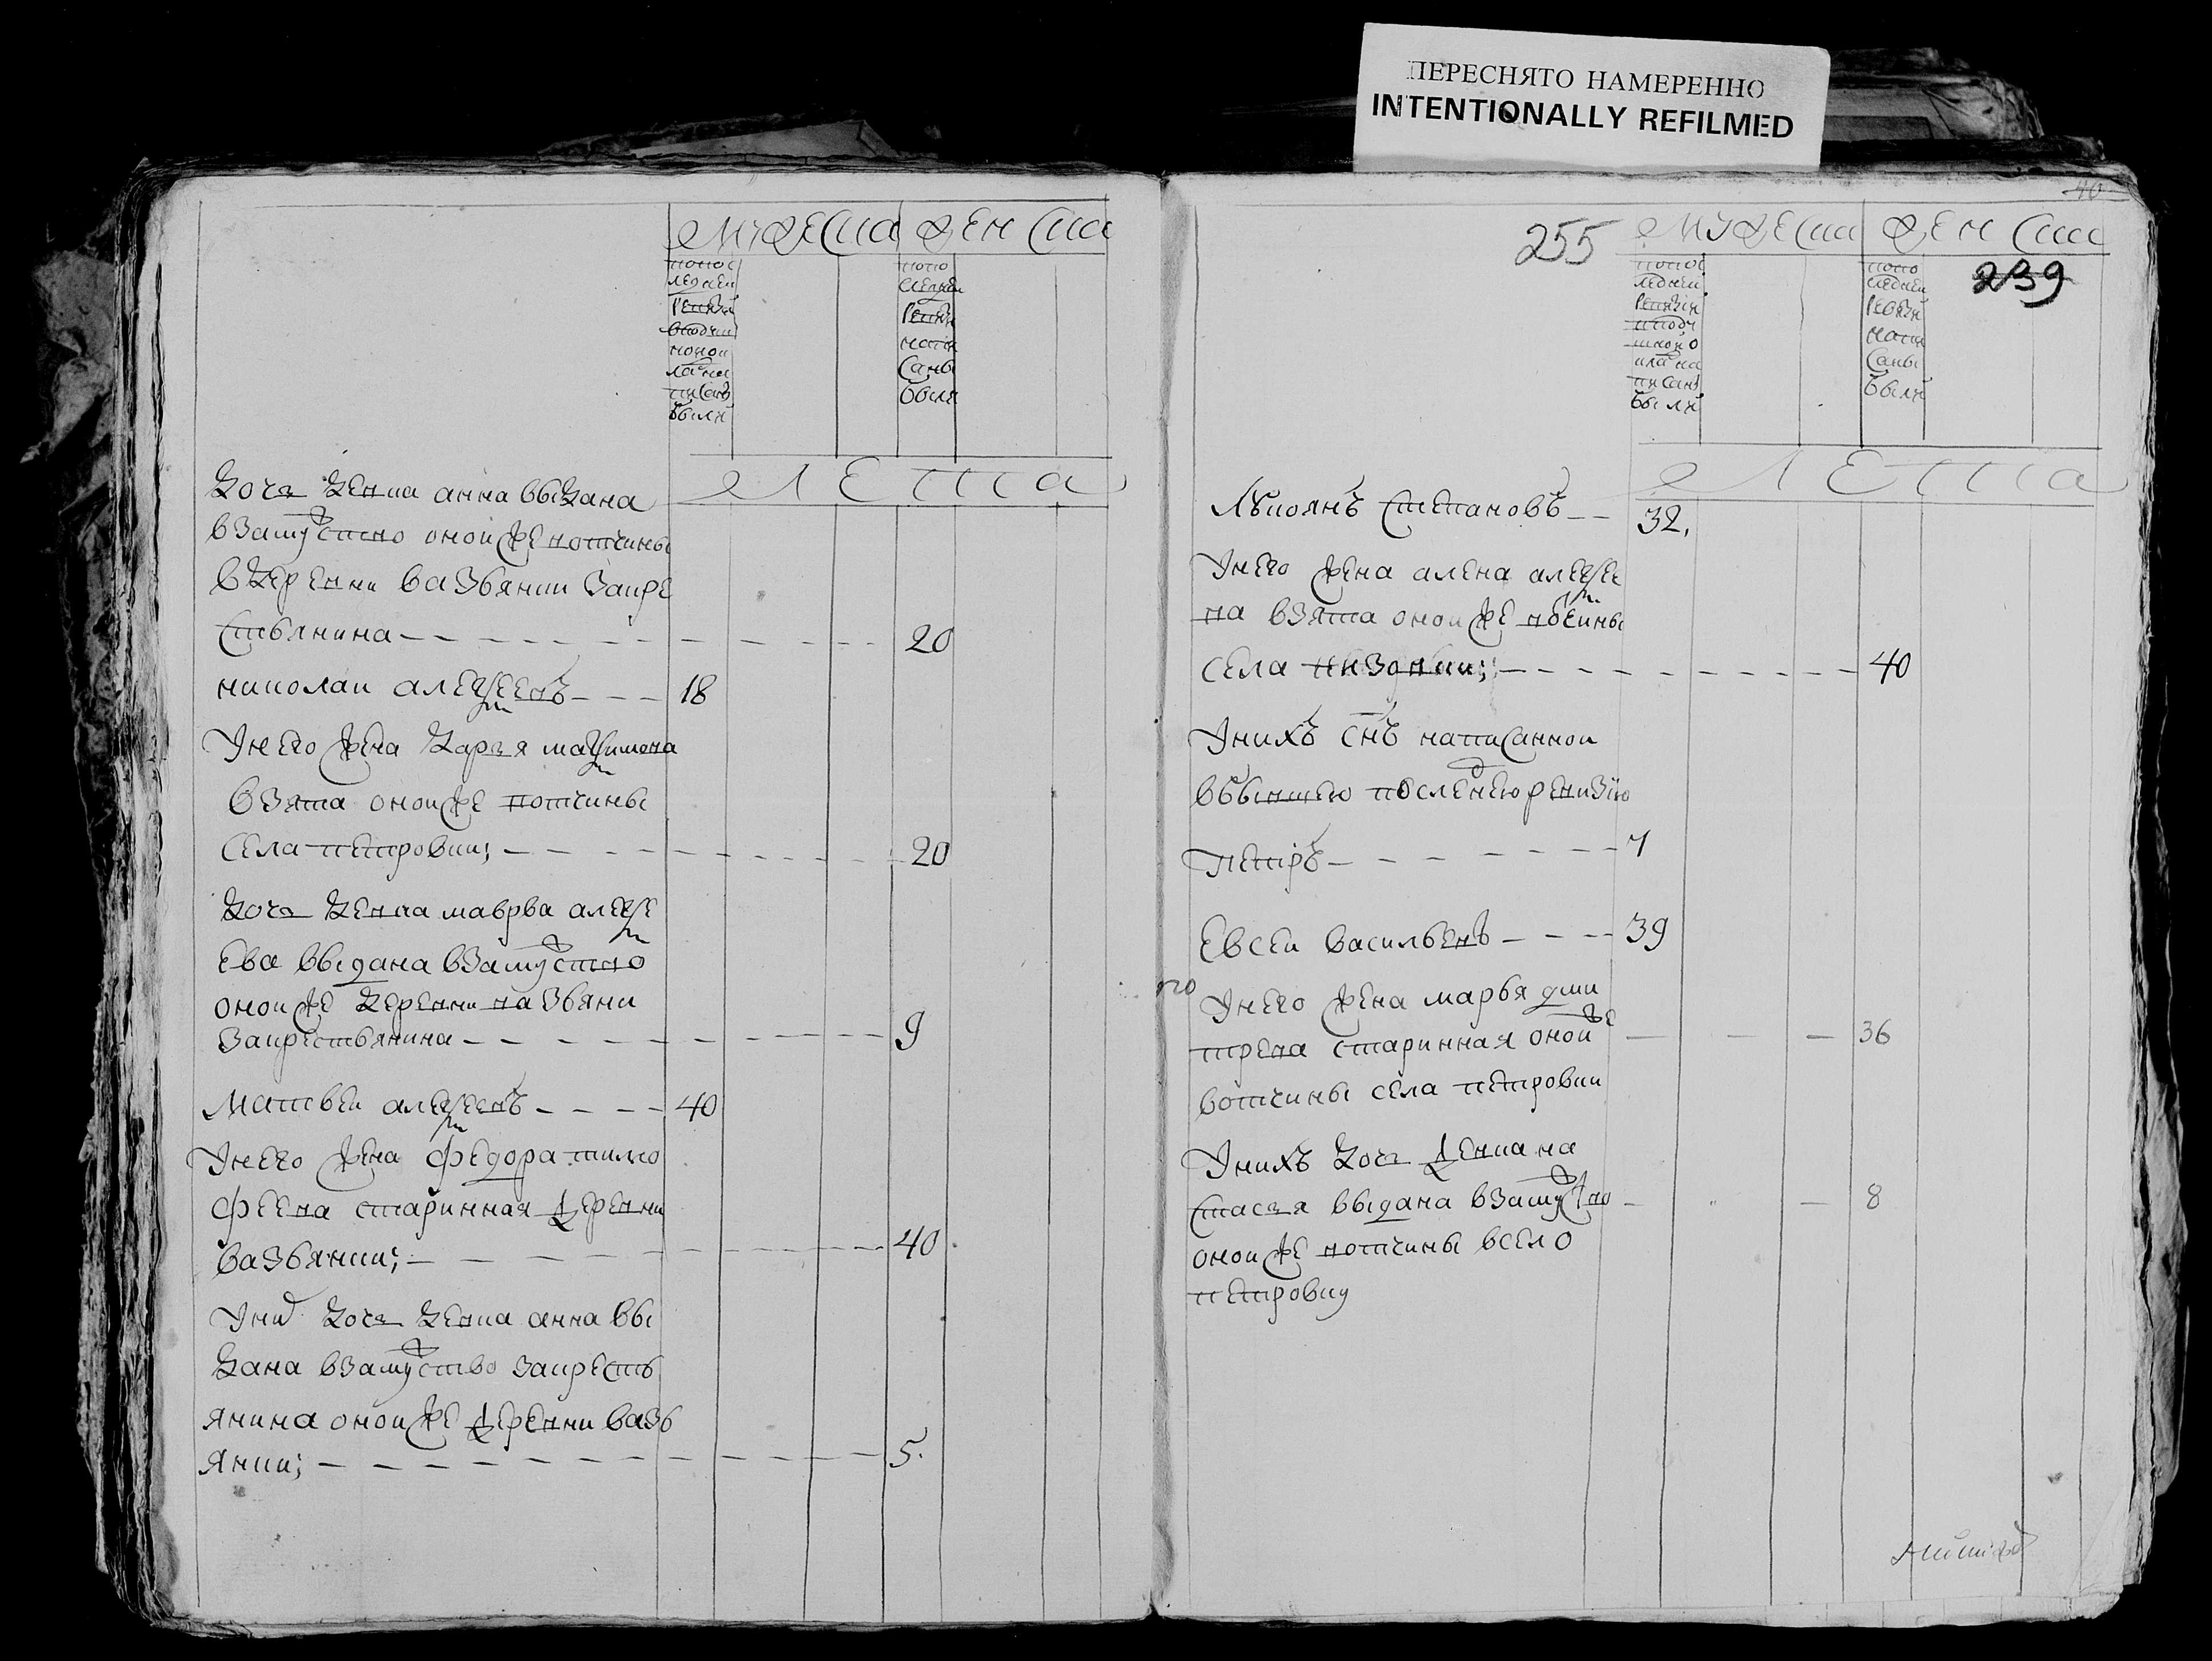 ПЕРЕСНЯТО НАМЕРЕННО
INTENTIONALLY REFILMED
мужеска женска
попос
ледней
ревизи
нонои
писаны
были
попо
следней
ревизи
напи
саны
были
лета
доч девка анна выдана
взамужство оной же вотчины
вдеревни вазьянки закре
стьянина 20
николаи алексеевъ 18
Унего жена дарья максимова
взята оной же вотчины
села петровки; 20
доч девка мавра алексе
ева выдана взамужство
оной же деревни вазьянки
закрестьянина 9
матвеи алексеевъ 40
Унего жена федора тимо
феева старинная деревни
вазьянки; 40
Уних доч девка анна вы
дана взамужство закресть
янина оной же деревни вазь
янки; 5.
40
255 мужеска женска
239
попос
ледней
ревизи
писаны
были
попо
следней
ревизи
напи
саны
были
лета
степановъ 32.
Унего жена алена алексее
ва взята оной же вотчины
села 40
Унихъ снъ написанной
вбывшею последнею ревизию
петръ 7
Евсеи васильевъ 39
Унего жена марья дми
трева старинная оной же 36
вотчины села петровки
Унихъ доч девка на
стасья выдана взамужство 8
оной же вотчины всело
петровку